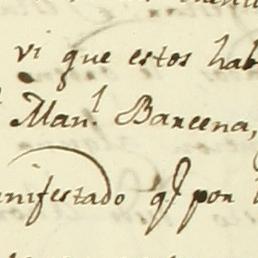 vi que estos hab
Man.l Barcena,
anifestado qe por